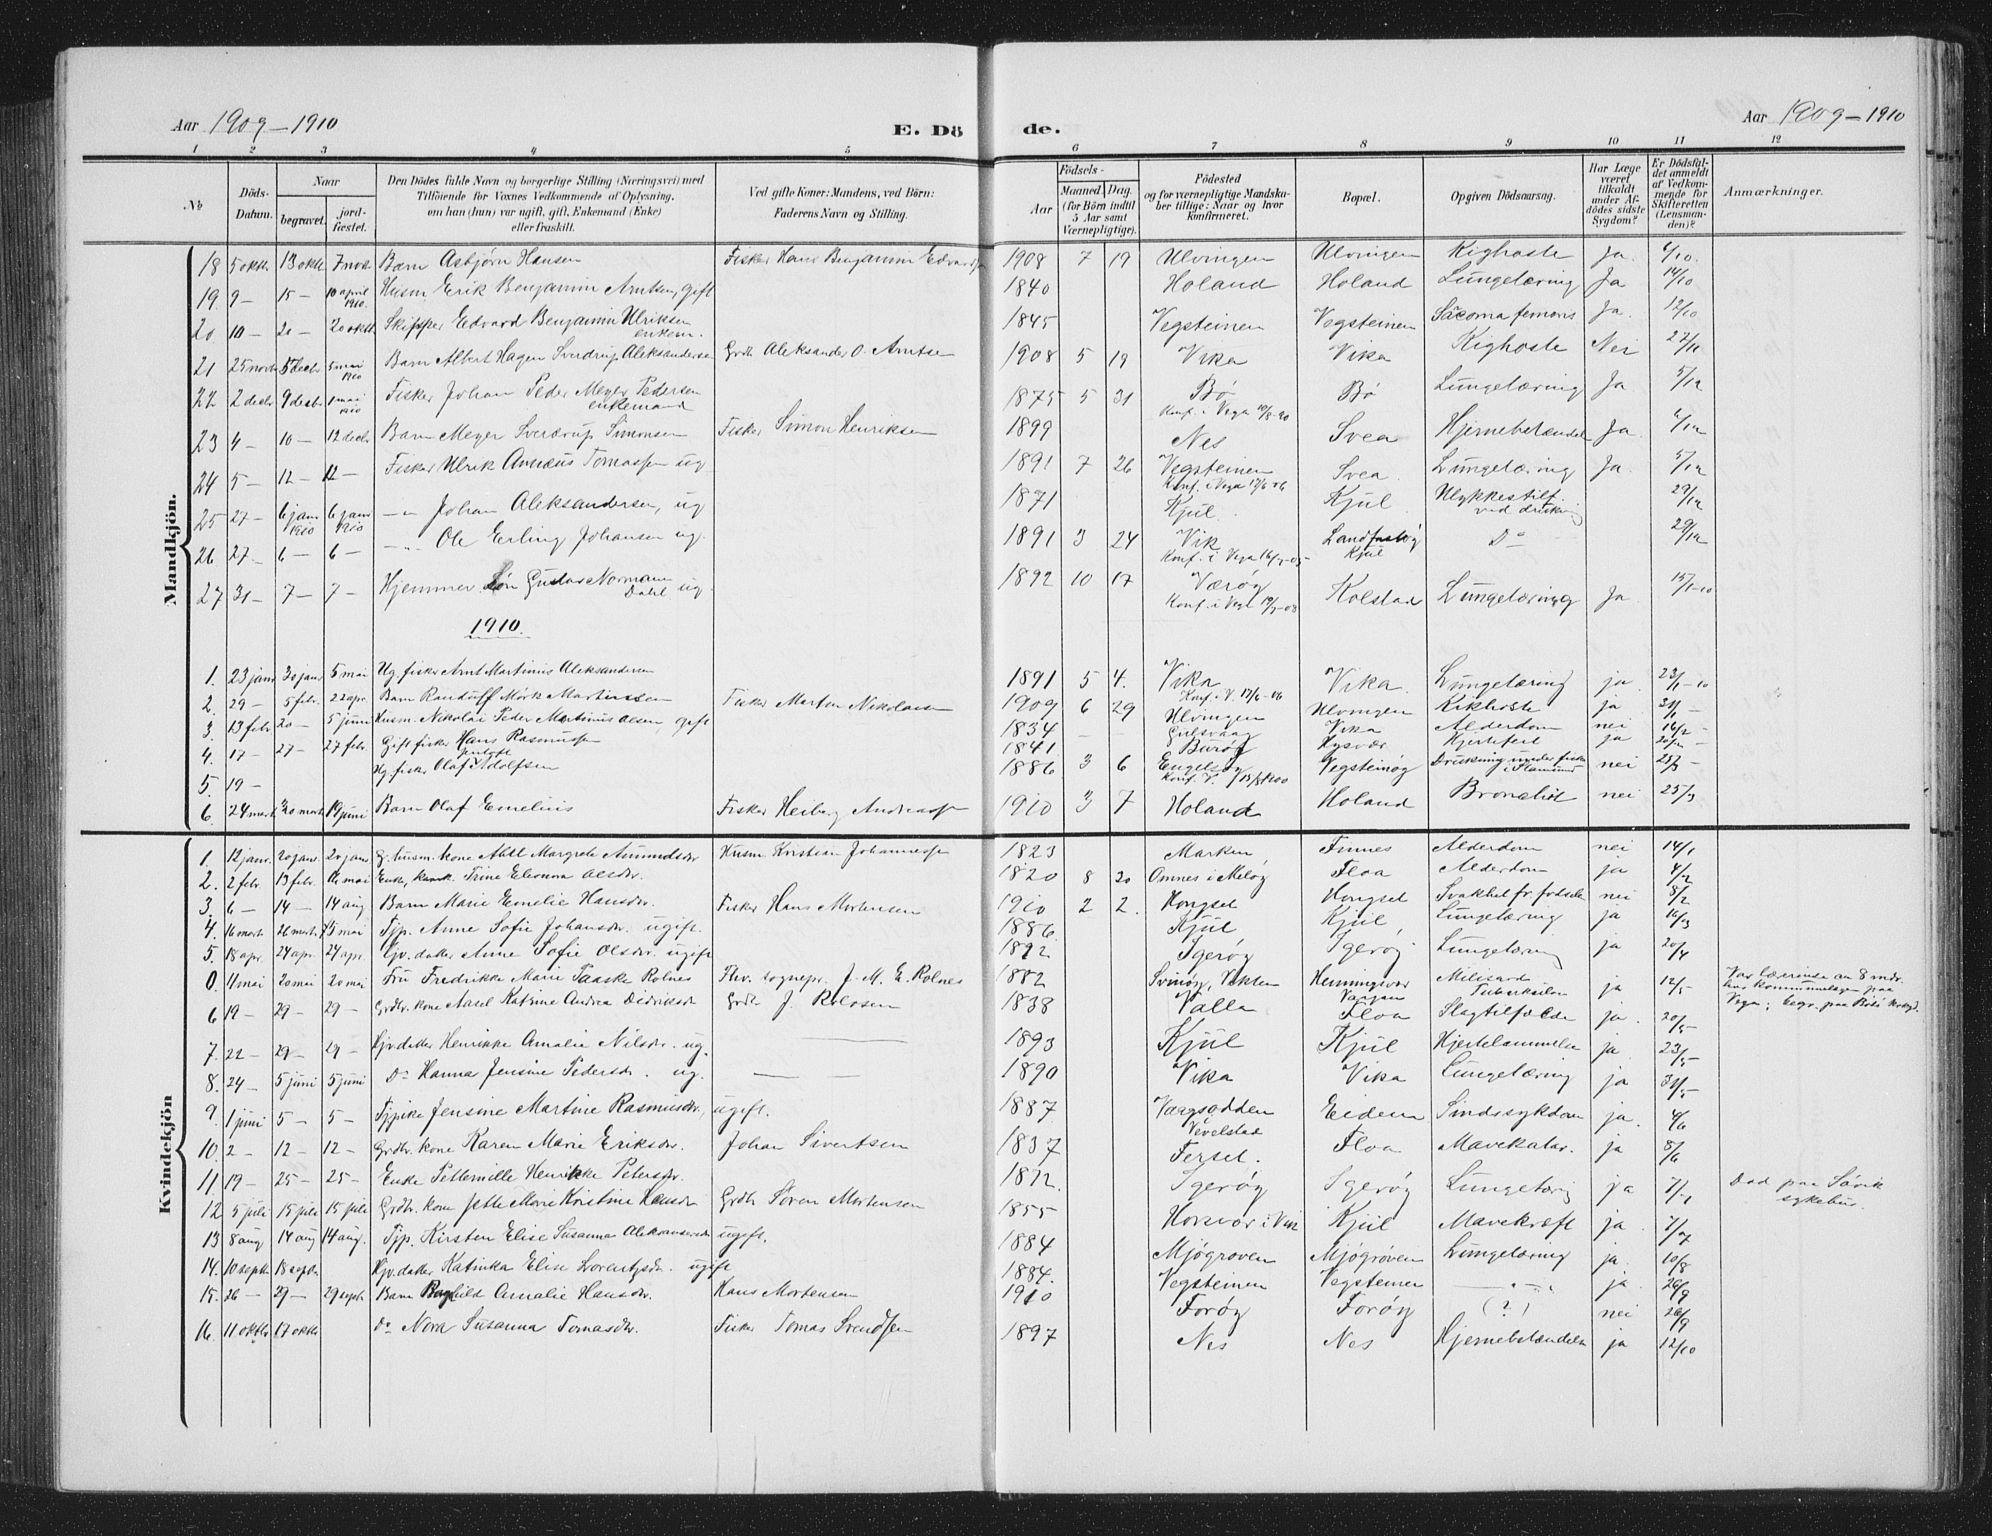 Aar 1909-1910
E. Dö
de.
Aar 1909-1910
1 2 3 4 5 6 7 8 9 10 11 12
№
Döds-Datum.
Naar
begravet.
jord-fæstet.
Den Dödes fulde Navn og borgerlige Stilling (Næringsvei) med
Tilföiende for Voxnes Vedkommende af Oplysning,
om han (hun) var ugift, gift, Enkemand (Enke)
eller fraskilt.
Ved gifte Koner: Mandens, ved Börn:
Faderens Navn og Stilling.
Födsels-
Aar
Maaned. Dag.
(for Börn indtil
5 Aar samt
Værnepligtige).
Födested
og for værnepligtige Mandska-
ber tillige: Naar og hvor
Konfirmeret.
Bopæl.
Opgiven Dödsaarsag.
Har Læge
været
tilkaldt
under Af-
dödes sidste
Sygdom?
Er Dödsfal-
det anmeldt
af Vedkom-
mende for
Skifteretten
(Lensman-
den)?
Anmærkninger.
Mandkjön.
18 5 oktbr 13 oktb 7 novb Barn Asbjørn Hansen Fisker Hans Benjamin Edvardsen 1908 7 19 Ulvingen Ulvingen Kighoste Ja 6/10
19 9- 15- 10 april 1910 Husm Erik Benjamin Arntsen, gift 1840 Holand Holand Lungetæring Ja 14/10
20 10- 20- 20 oktb Skipper Edvard Benjamin Ulriksen enkem. 1845 Vegsteinen Vegsteinen Sacoma femoris Ja. 12/10
21 25 novb 15 decbr 5 mai 1910 Barn Albert Hagen Sverdrup Aleksandersen Grdb Aleksander O. Arntsen 1908 5 19 Vika Vika Kighoste Nei 27/11
22 2 decbr 9 decbr 1 mai 1910 Fisker Johan Peder Meyer Pedersen enkemand 1875 5 31 Bø Konf. i Vega 10/8-90 Bø Lungetæring Ja 5/12
23 4- 10- 12 decbr Barn Meyer Sverdrup Simonsen Fisker Simon Henriksen 1899 Nes Svea Hjernebetændel Ja. 6/12
24 5- 12- 12- Fisker Ulrik Annæus Tomassen ug 1891 7 26 Vegsteinen Konf. i Vega 17/6-06 Svea Lungetæring Ja. 5/12
25 27- 6 jan 1910 6 jan 1910 -"- Johan Aleksandersen, ug 1871 Kjul Kjul Ulykkestilf. ved drukning 29/12
26 27- 6- 6- -"- Ole Erling Johansen ug. 1891 3 24 Vik Kjul Do 29/12
27 31- 7- 7- Hjemmev. Søn Gustav Normann Dahl ug. 1892 10 17 Værøy Kolstad Lungetæring Ja 15/1-10
1910.
1. 23 janr 30 janr 5 mai Ug. fisker Arnt Martinus Aleksandersen 1891 5 4. Vika Konf. i V. 17/6-06 Vika Lungetæring ja 23/1-10
2. 29- 5 febr. 22 apr. Barn Randulf Mørk Martinssen Fisker Morten Nikolaisen 1909 6 29 Ulvingen Ulvingen Kikhoste ja 31/1-
3. 13 febr 20- 5 juni Husm. Nikolai Peder Martinus Olsen, gift 1834 Gulsvaag Vika Alderdom nei 16/2-
4. 17- 27- 27 febr. Gift fisker Hans Rasmussen 1841 Burøy Hysvær Hjertefeil ja
5. 19- Ug. fisker Olaf Adolfsen 1886 3 6 Engelsøy Vegsteinøy nei
6. 24 mart 30 mart 19 juni Barn Olaf Emelius Fisker Heiberg Andreassen 1910 3 7 Holand Holand Bronchit nei 25/3
Kvindekjön
1. 12 janr. 20 janr 20 janr G. husm. kone Abel Margrete Amundsdr. Husm Kristian Johannessen 1823 Marken Finnes Alderdom nei 14/1
2. 2 febr. 13 febr. 16 mai Enke, Trine Eleonna Olsdr. 1820 8 20 Omnes i Meløy Floa Alderdom ja 4/2
3. 6- 14- 14 aug Barn Marie Emelie Hansdr. Fisker Hans Mortensen 1910 2 2. Hongset Hongset Svakhet fr. fødsele nei 8/2
4. 16 mart 26 mart 15 mai Tjp. Anne Sofie Johansdr. ugift. 1886 Kjul Kjul Lungetæring ja 16/3
5. 18 apr. 24 apr. 24 apr. Hjv. datter Anne Sofie Olsdr. ugift 1892 Igerøy Igerøy Lungetæring ja 20/4
0. 11 mai 20 mai 20 mai Fru Fredrikke Marie Taaske Rolnes Rev. sognepr. J. M. E. Rolnes 1882 Svinøy, Vikten Henningsvær Vaagan Miliær Tuberkulose ja 12/5 Var lærerinde ca 8 mdr. hos kommunelægen paa Vega; begr. paa
6 19- 29- 29- Grdbr. kone Aasel Katrine Andrea Didriksdr Grdb J. Rolosen 1838 Valla Floa Slagtilfælde ja. 20/5
7. 22- 29- 29- Hjv. datter Henrikke Amalie Nilsdr. ug. 1893 Kjul Kjul Hjertelammelse ja 23/5
8. 24- 5 juni 5 juni Do Hanna Jensine Pedersdr. ug. 1890 Vika Vika Lungetæring ja 31/5
9. 1 juni 5- 5- Tjpike Jensine Martine Rasmusdr., ugift. 1887 Vægsodden Vevelstad Eidem Sindssykdom ja. 4/6
10. 2- 12- 12- Grdbr. kone Karen Marie Eriksdr. Johan Sivertsen 1837 Ferset. Floa Mavekatar. ja 8/6
11. 19- 25- 25- Enke Pettemille Henrikke Petersdr. 1872. Igerøy Igerøy Lungetærig ja 7/1 Død paa Søvik sykehus.
12 5 juli 15 juli 15 juli Grdbr. kone Jette Marie Kristine Hansdr Grdb Søren Mortensen 1855 Horsvær i Vik Kjul Mavekræft ja. 7/7
13 8 aug 14 aug 14 aug. Tjp. Kirsten Elise Susanna Aleksandersdr ugift. 1884 Mjøgroven Mjøgrøven Lungetæring ja. 10/8
14. 10 septb 18 septb Hjv. datter Katinka Elise Lorentzdr. ugift 1884. Vegsteinen Vegsteinen -"- ja. 26/9
15. 26- 29- 29 septb. Barn Ragnhild Amalie Hansdr. Hans Mortensen 1910 Forøy Forøy (?) nei 26/9
16. 11 oktbr 17 oktbr Do Nora Susanna Tomasdr. Fisker Tomas Svendsen 1897 Nes Nes Hjernebetændelse ja 12/10